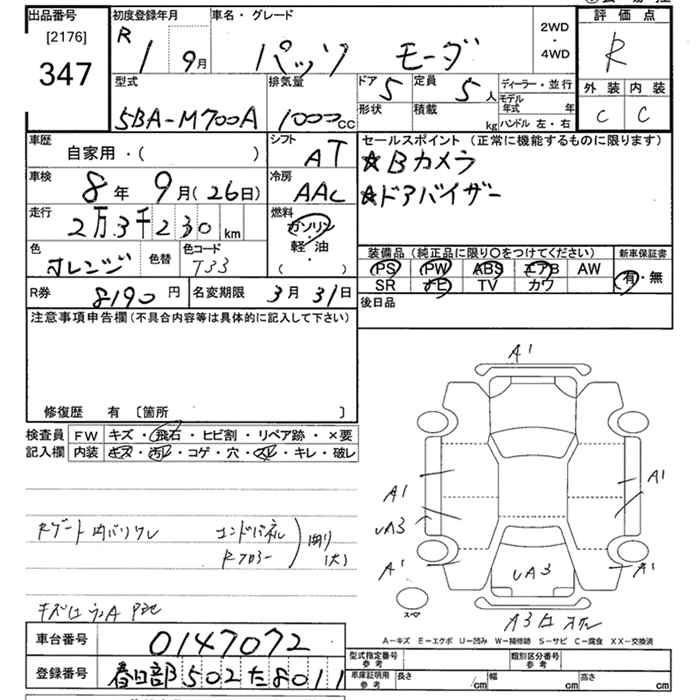 出品番号
[2176]
347
初度登録年月
R 1 9月
車名・グレード
パッソ モーダ
2WD
・
4WD
評価点
R
外装 内装
C C
型式
5BA-M700A
排気量
1000cc
ドア 5
定員 5人
形状
積載 kg
ディーラー・並行
モデル年式 年
ハンドル 左・右
車歴
自家用・( )
シフト
AT
セールスポイント (正常に機能するものに限ります)
☆Bカメラ
☆ドアバイザー
車検
8年 9月(26日)
冷房
AAC
走行
2万3千230km
燃料
ガソリン
軽・油
( )
色
オレンジ
色替
色コード
T33
装備品(純正品に限り〇をつけてください)
PS PW ABS エアB AW
SR ナビ TV カワ
新車保証書
有・無
R券 8190円
名変期限 3月31日
後日品
注意事項申告欄(不具合内容等は具体的に記入して下さい)
修復歴 有 〔箇所 〕
検査員
記入欄
FW キズ・飛石・ヒビ割・リペア跡・×要
内装 キズ・汚レ・コゲ・穴・スレ・キレ・破レ
Rゲート内バリワレ
エンドパネル
Rフロアー
(大)
A1
A1
A1
UA3
A1
UA3
A1
スペア
A-キズ E-エクボ U-凹み W-補修跡 S-サビ C-腐食 XX-交換済
車台番号 0147072
登録番号 春日部502た8011
型式指定番号
参考
類別区分番号
参考
車庫証明用
参考
長さ cm
幅 cm
高さ cm